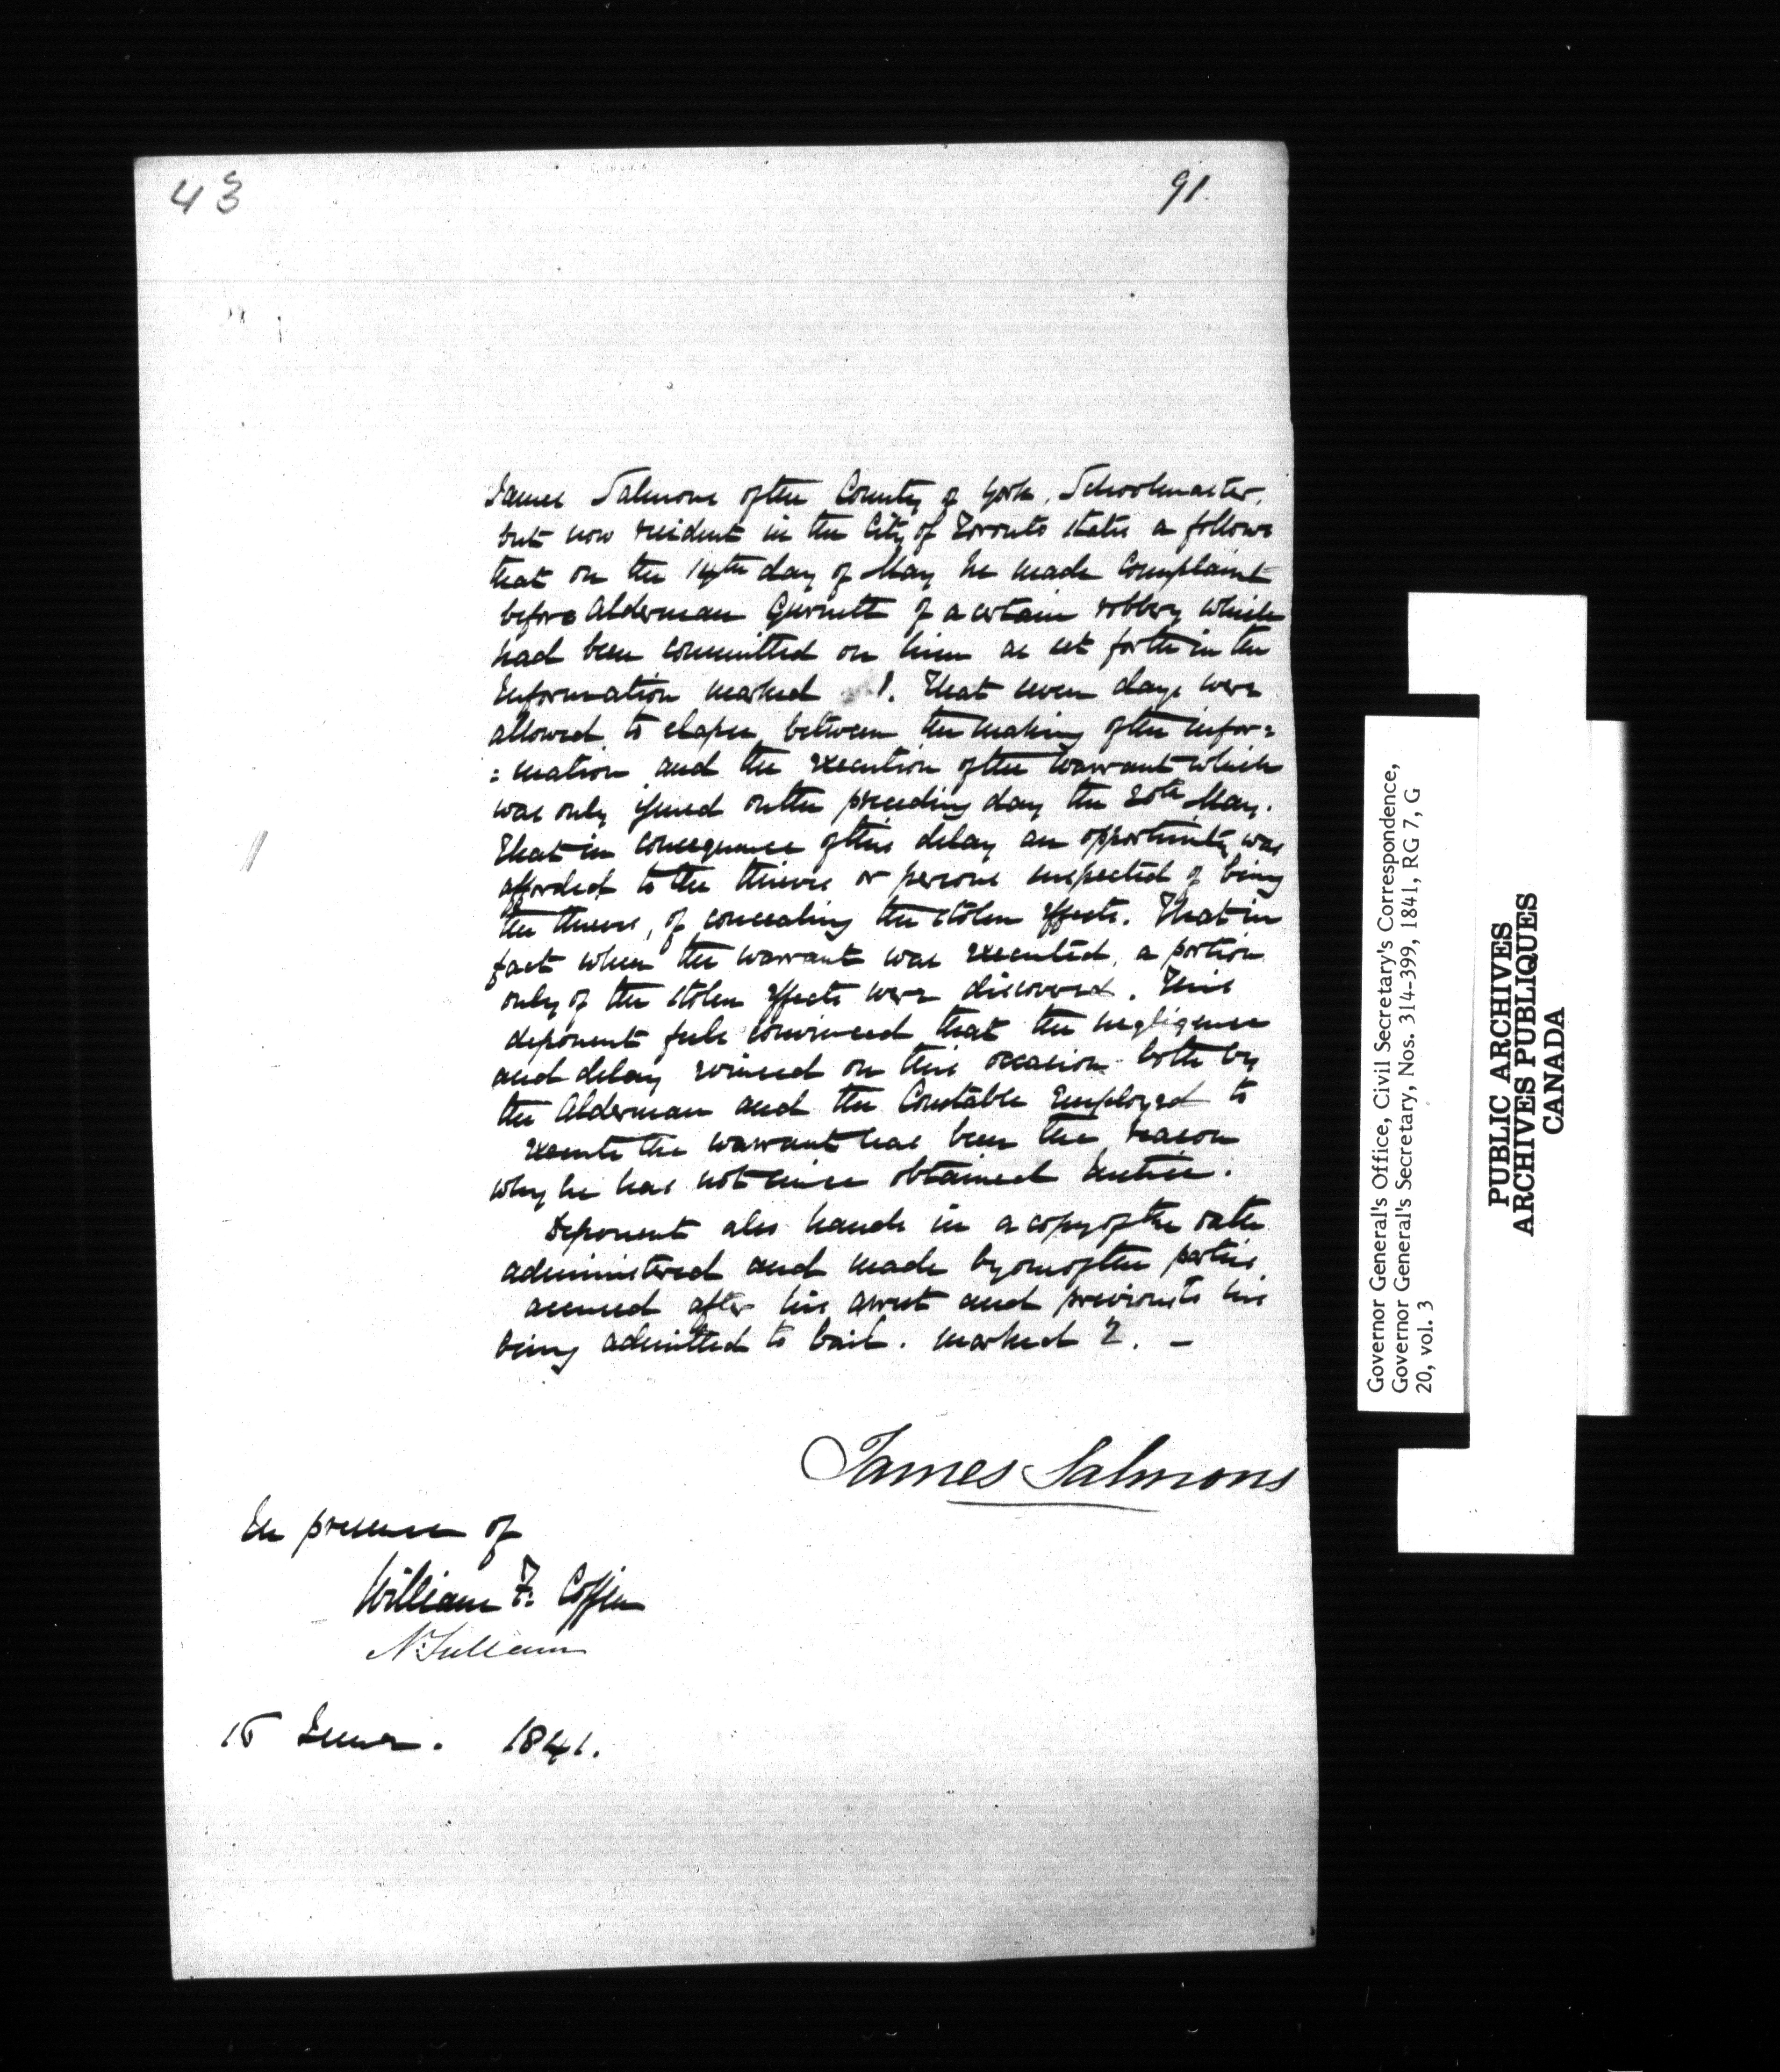 43
91.
James Salmons of the County of York, Schoolmaster,
but now resident in the City of Toronto states as follows
that on the 14th day of May he made Complaint
before Alderman Gurnett of a certain robbery which
had been committed on him as set forth in the
Information marked 1. That seven days were
allowed to elapse between the making of the infor=
=mation and the execution of the warrant which
was only issued on the preceding day the 20th May.
That in consequence of this delay an opportunity was
afforded to the thieves or persons suspected of being
the thieves, of concealing the stolen effects. That in
fact when the warrant was executed, a portion
only of the stolen effects were discovered. This
deponent feels convinced that the negligence
and delay evinced on this occasion both by
the Alderman and the Constable Employed to
execute the warrant has been the reason
why he has not since obtained Justice.
Deponent also hands in a copy of the oath
administered and made by one of the parties
accused after his arrest and previous to his
being admitted to bail. marked 2. –
James Salmons
In presence of
William F. Coffin
N. Sullivan
15 June. 1841.
Governor General's Office, Civil Secretary's Correspondence,
Governor General's Secretary, Nos. 314-399, 1841, RG 7, G
20, vol. 3
PUBLIC ARCHIVES
ARCHIVES PUBLIQUES
CANADA